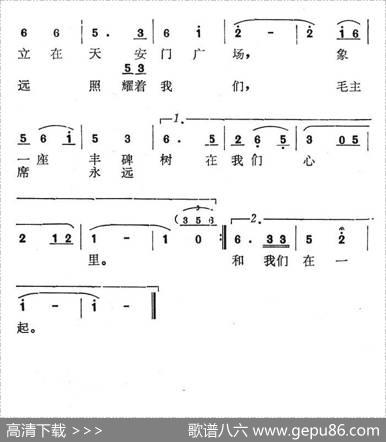 6 6 5. 3 6 i 2 - 2 i 6
立在天安门广场，象
5 3
远照耀着我们，毛主
1.
5 6 i 5 3 6. 5 2 6 5 3 0 5
一座丰碑树在我们心
席永远
3
(3 5 6
2.
2 1 2 1 - 1 0 :‖ 6. 3 3 5 2
里。和我们在一
i - i - ‖
起。
高清下载 >>>
歌谱八六 www.gepu86.com